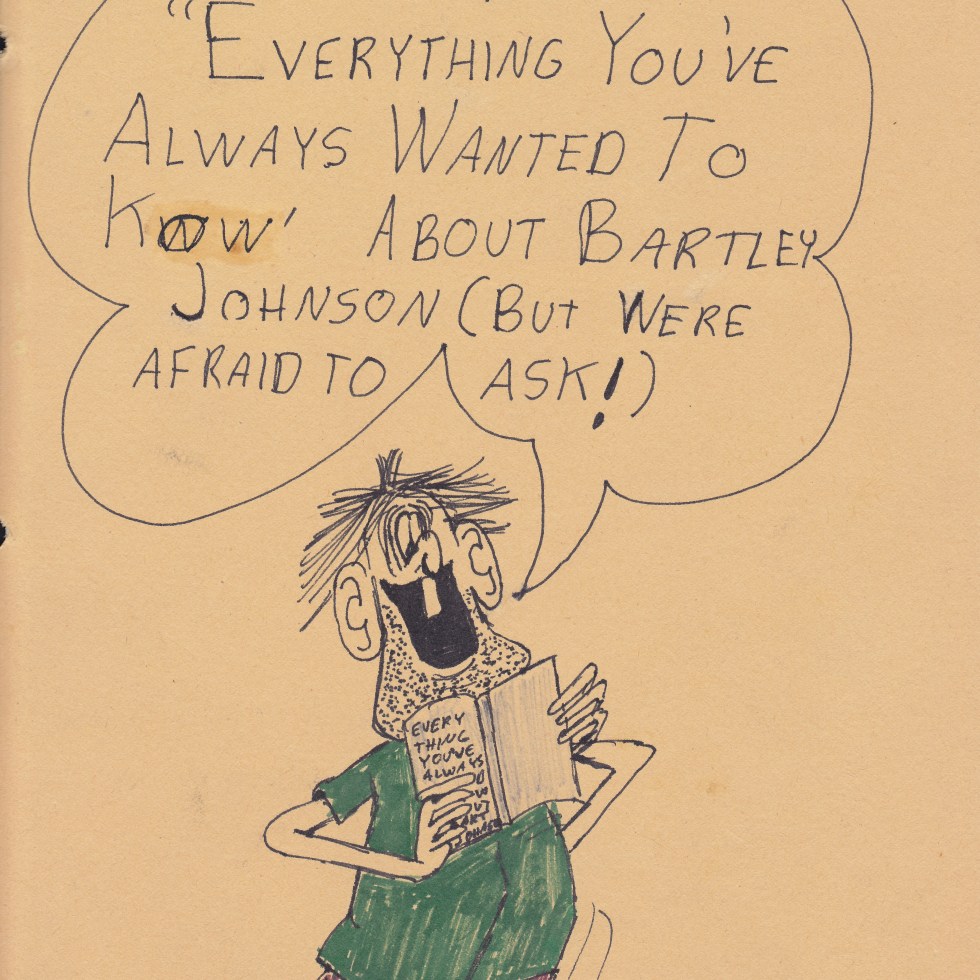 "EVERYTHING YOU'VE
ALWAYS WANTED TO
KNOW' ABOUT BARTLEY
JOHNSON (BUT WERE
AFRAID TO ASK!)
EVERY
THING
YOU'VE
ALWAYS